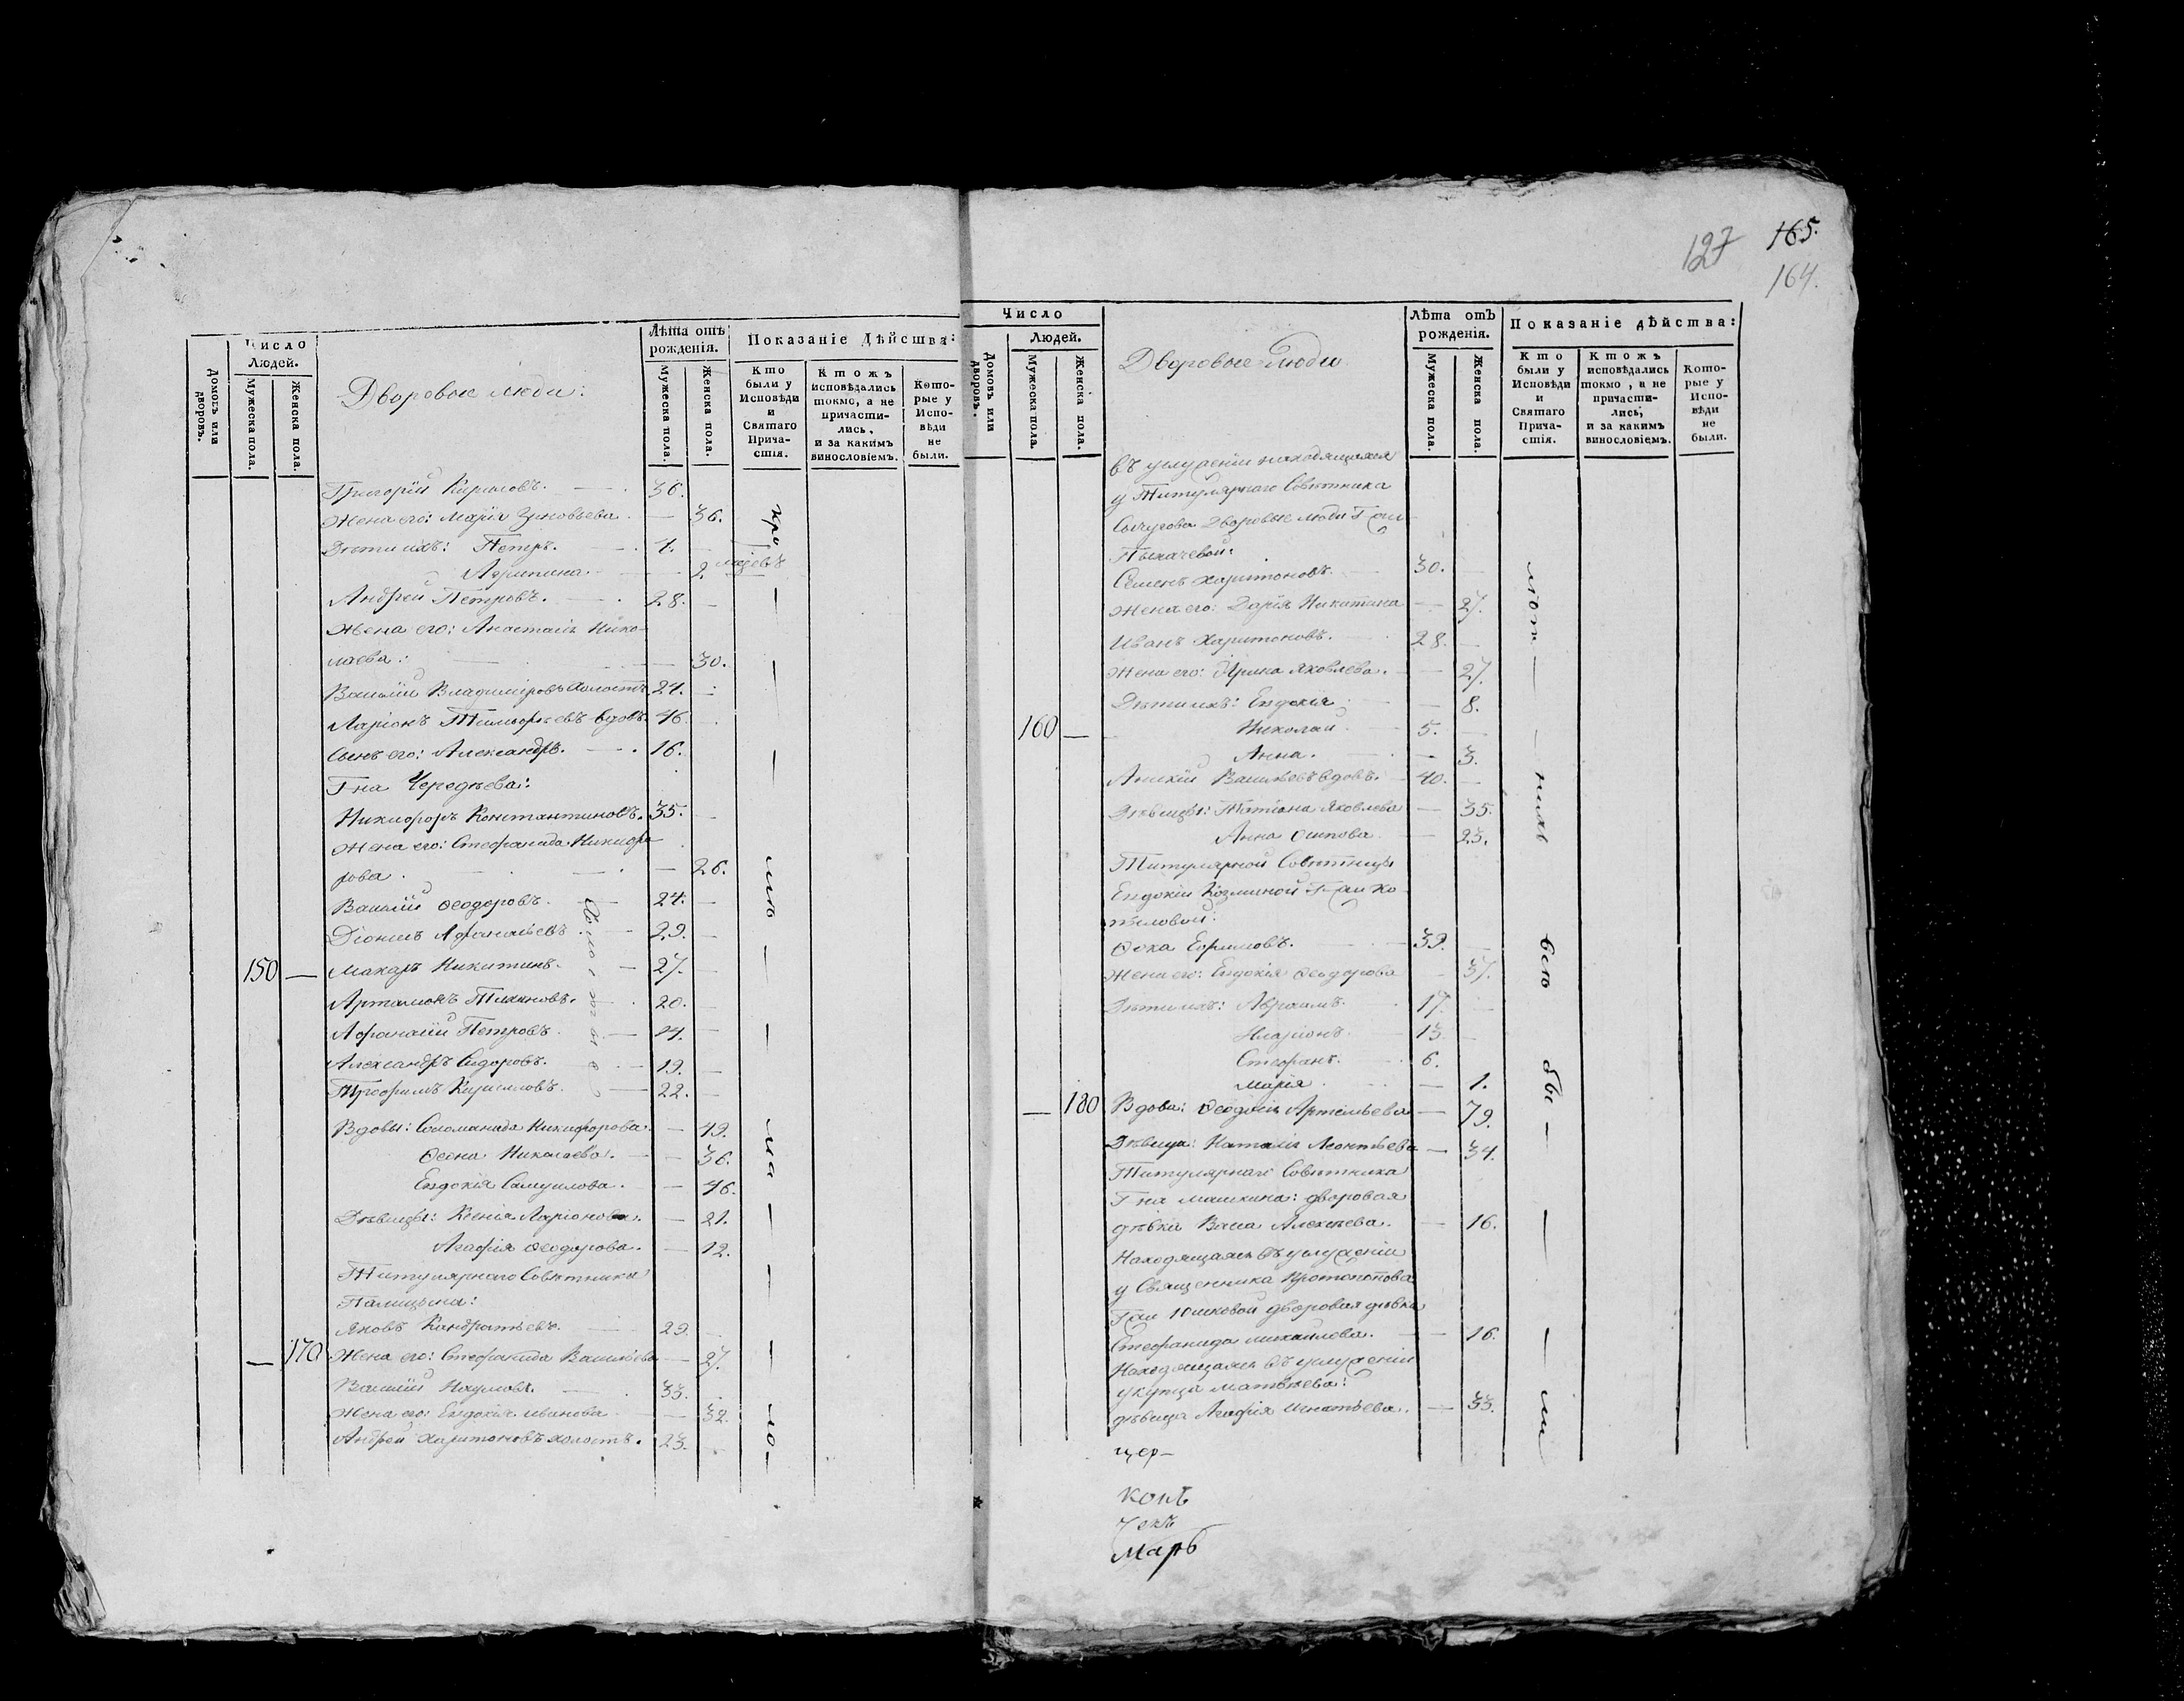 Число
Людей.
Домовъ или дворовъ.
Мужеска пола.
Женска пола.
Дворовые люди:
Лѣта отъ рожденія.
Мужеска пола.
Женска пола.
Показаніе Дѣйства:
Кто были у Исповѣди и Святаго Прича-стія.
Ктожъ исповѣдались токмо, а не причасти-лись, и за какимъ винословіемъ.
Кото-рые у Испо-вѣди не были.
Григорій Кириловъ. — 36.
Жена его: Марія Зиновьева. — 36.
Дѣти ихъ: Петръ. — 4.
Агрипина. — 2.
Андрей Петровъ. — 28. —
Жена его: Анастасія Нико-
лаева: — 30.
Василій Владиміровъ холостъ 24. —
Ларіонъ Тимофеевъ вдовъ. 46.
Сынъ его: Александръ. — 16.
Гна Чередѣева:
Никифоръ Константиновъ. 35. —
Жена его: Стефанида Никифо-
рова. — 26.
Василій Ѳеодоровъ. 24. —
Діонисъ Афанасьевъ. — 29. —
150 — Макаръ Никитинъ. — 27. —
Артамонъ Тихоновъ. 20. —
Афанасій Петровъ. — 24. —
Александръ Сидоровъ. — 19. —
Трофимъ Кирилловъ. — 22. —
Вдовы: Соломанида Никифорова. — 49.
Ѳеона Николаева. — 36.
Евдокія Самуилова. — 46.
Дѣвицы: Ксенія Ларіонова. — 21.
Агафія Ѳеодорова. — 12.
Титулярнаго Совѣтника
Палицына:
Яковъ Кандратьевъ. — 29.
— 170 Жена его: Стефанида Васильева — 27.
Василій Наумовъ. — 33.
Жена его: Евдокія Иванова — 32.
Андрей Харитоновъ холостъ. 23.
127 165.
164.
Число
Людей.
Домовъ или дворовъ.
Мужеска пола.
Женска пола.
Дворовые люди
Лѣта отъ рожденія.
Мужеска пола.
Женска пола.
Показаніе дѣйства:
Кто были у Исповѣди и Святаго Прича-стія.
Ктожъ исповѣдались токмо, и не причасти-лись, и за какимъ винословіемъ.
Кото-рые у Испо-вѣди не были.
въ услуженіи находящіяся
у Титулярнаго Совѣтника
Сычугова Дворовые люди Гжи
Семенъ Харитоновъ. — 30. —
Жена его: Дарія Никитина — 27.
Иванъ Харитоновъ. 28. —
Жена его: Ирина Яковлева. — 27.
Дѣти ихъ: Евдокія. — 8.
160 — Николай. 5. —
Анна. — 3.
Васильевъ вдовъ. 40. —
Дѣвицы: Татіана Яковлева — 35.
Анна Осипова — 23.
Титулярной Совѣтницы
Евдокіи Козминой Гжи Ко-
тѣловой:
Ѳока Ефимовъ. — 39. —
Жена его: Евдокія Ѳеодорова — 37.
Дѣти ихъ: Авраамъ. 17. —
Иларіонъ. 13.
Стефанъ. 6.
Марія. — 1.
— 180 Вдова: Ѳеодосія Артемьева — 79.
Дѣвица: Наталія Леонтьева — 34.
Титулярнаго Совѣтника
Гна Машкина: дворовая
дѣвка Васса Алексѣева. — 16.
Находящаяся въ услуженіи
у Священника Протопопова
Гжи Юшковой дворовая дѣвка
Стефанида Михайлова. — 16.
Находящаяся въ услуженіи
у купца Матвѣева:
дѣвица Агафія Игнатьева. — 33.
цер-